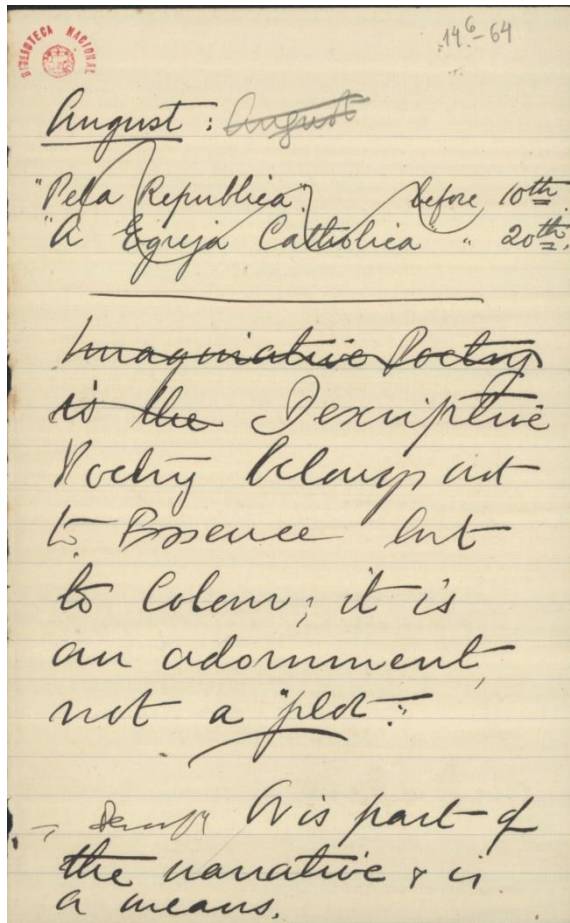 BIBLIOTECA NACIONAL
14⁶-64
August: August
"Pela Republica". before 10th.
"A Egreja Catholica" " 20th.
Imaginative Poetry
is the Descriptive
Poetry belongs not
to Essence but
to Colour; it is
an adornment,
not a "plot".
It is part of
the narrative & is
a means.